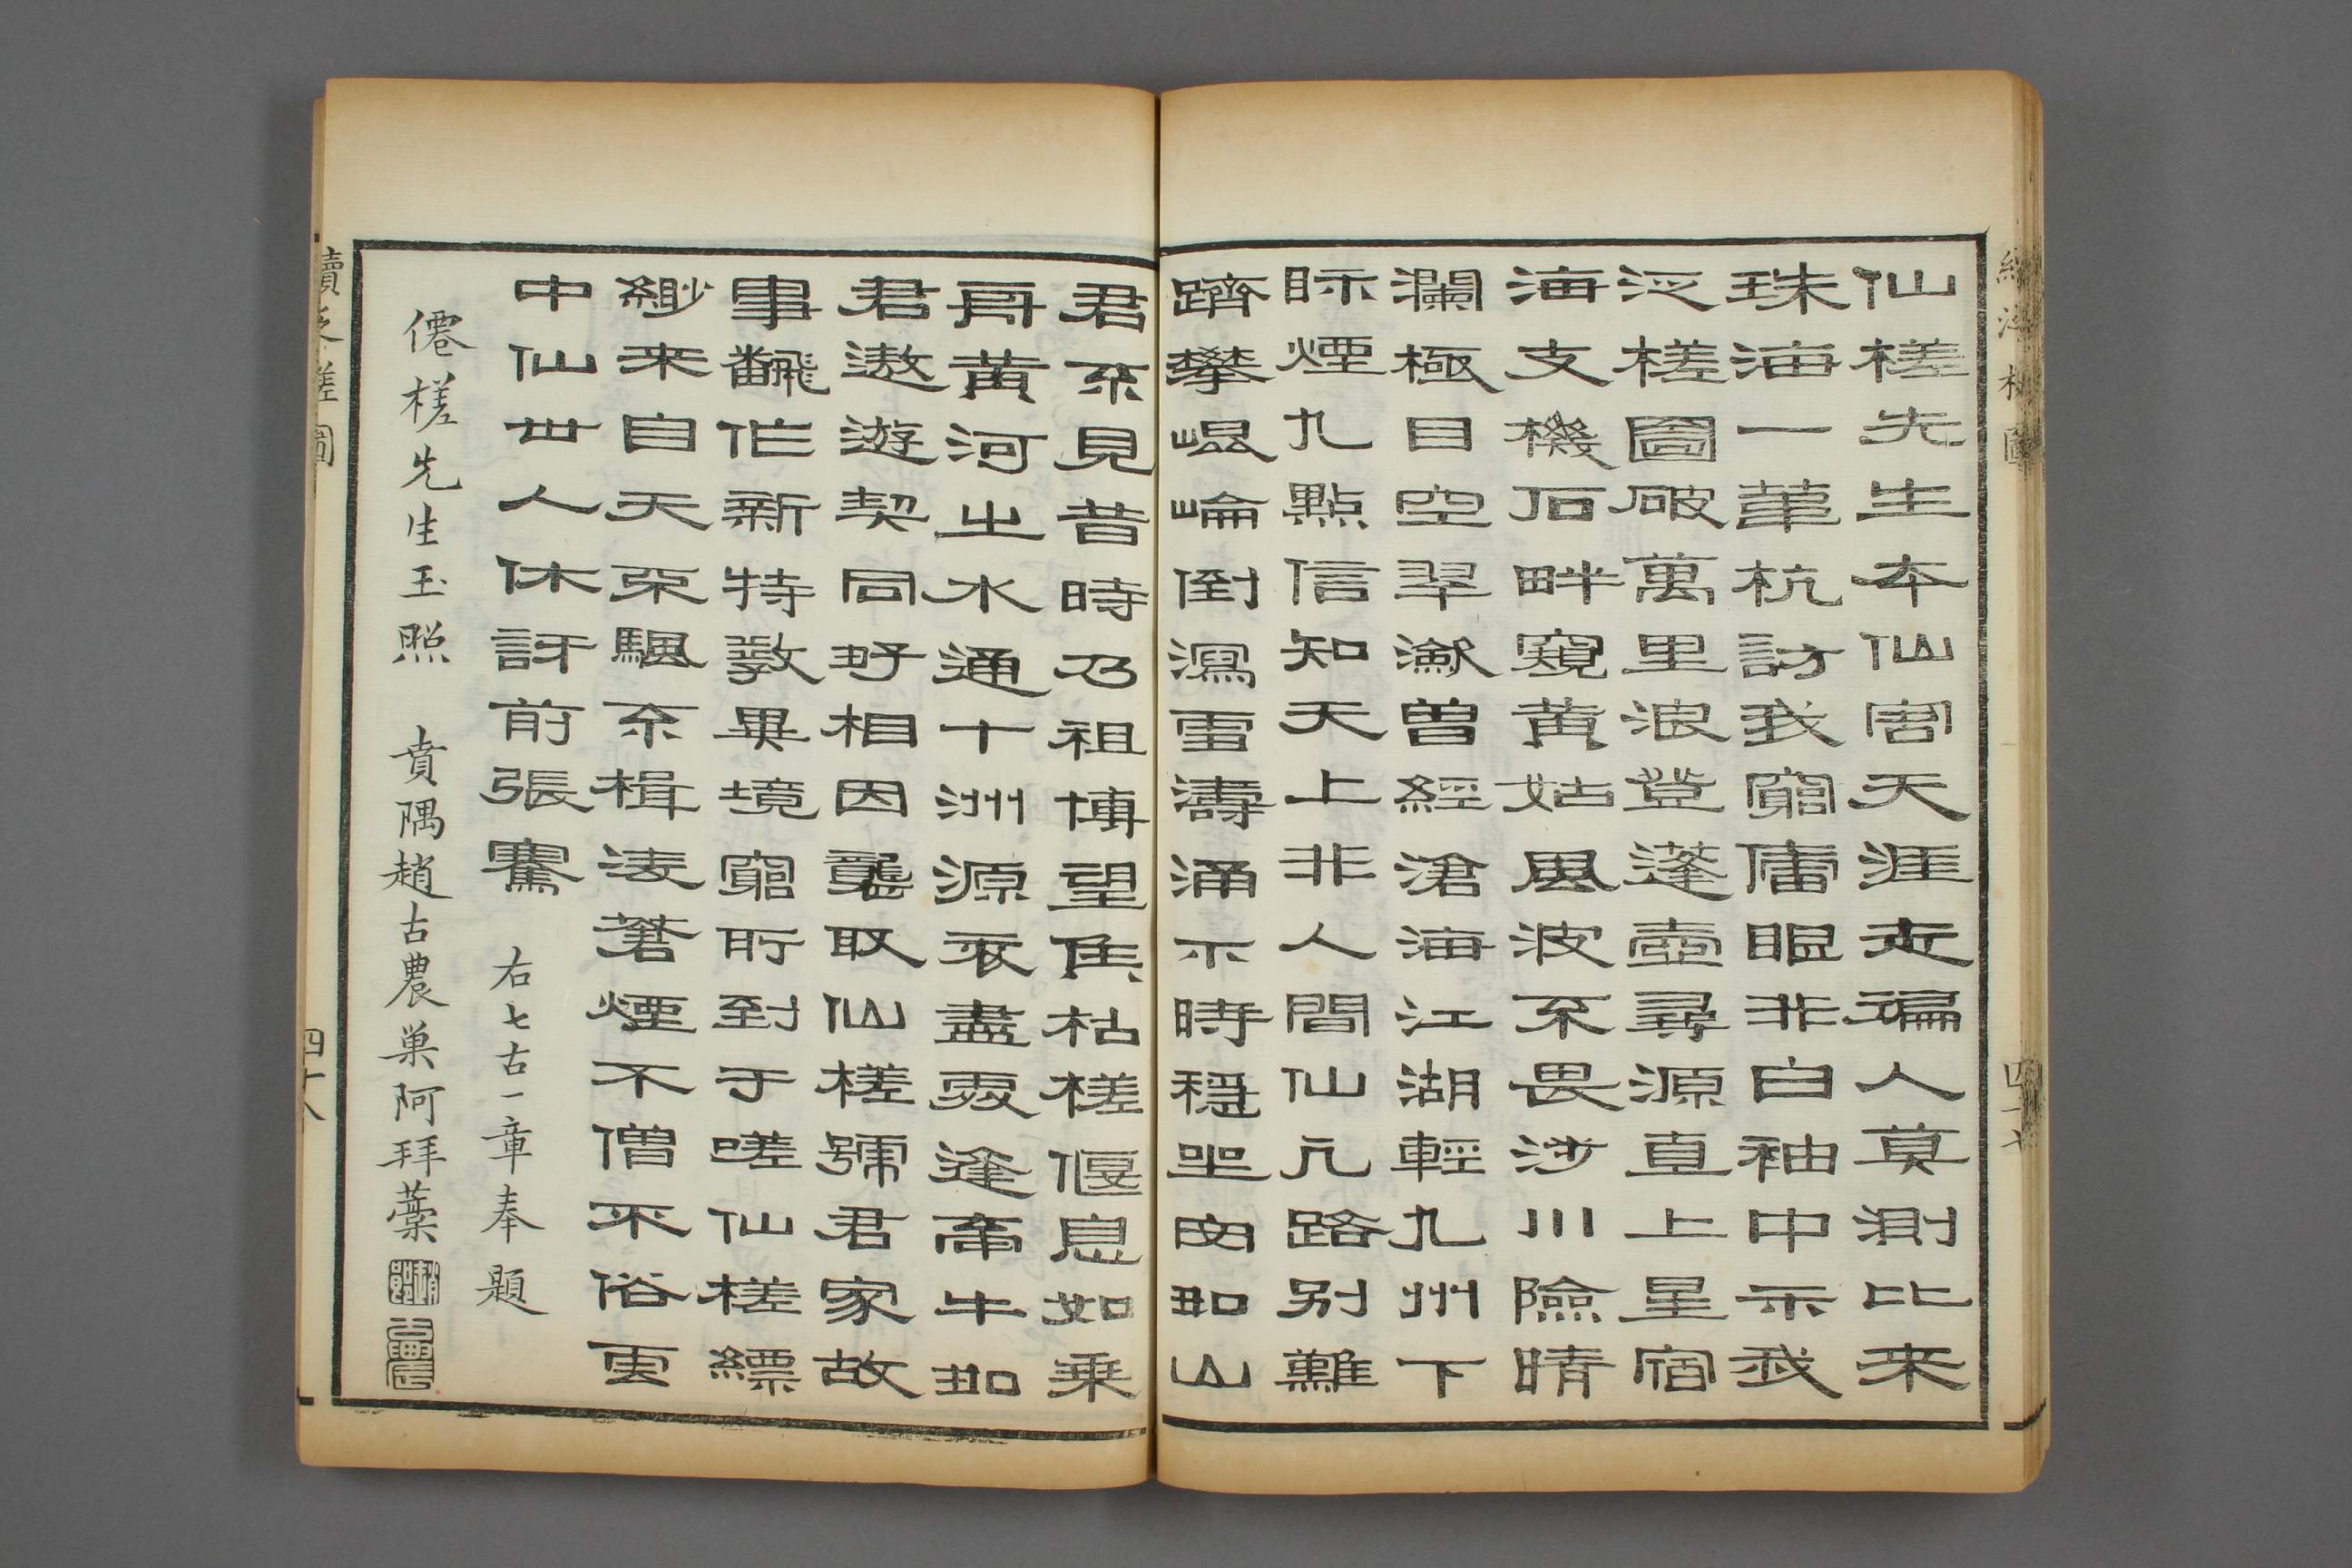 仙槎先生本仙客天涯走徧人莫測比來
珠海一葦杭訪我窮廬眼非白袖中示我
泛槎圖破萬里浪登蓬壺尋源直上星宿
海支機石畔窺黃姑風波不畏涉川險晴
瀾極目空翠瀲曾經滄海江湖輕九州下
眎煙九點信知天上非人間仙凡路別難
躋攀崐崘倒瀉雪濤涌不時穩坐安如山
君不見昔時乃祖博望侯枯槎偃息如乘
舟黃河之水通十洲源衣盡處逢牽牛如
君遨遊契同好相因襲取仙槎號君家故
事飜作新特敦異境窮所到于嗟仙槎縹
緲來自天不驅不楫淩蒼煙不僧不俗雲
中仙世人休訝前張騫
右七古一章奉題
僊槎先生玉照 賁隅趙古農巢阿拜藳
續泛槎圖
四十八